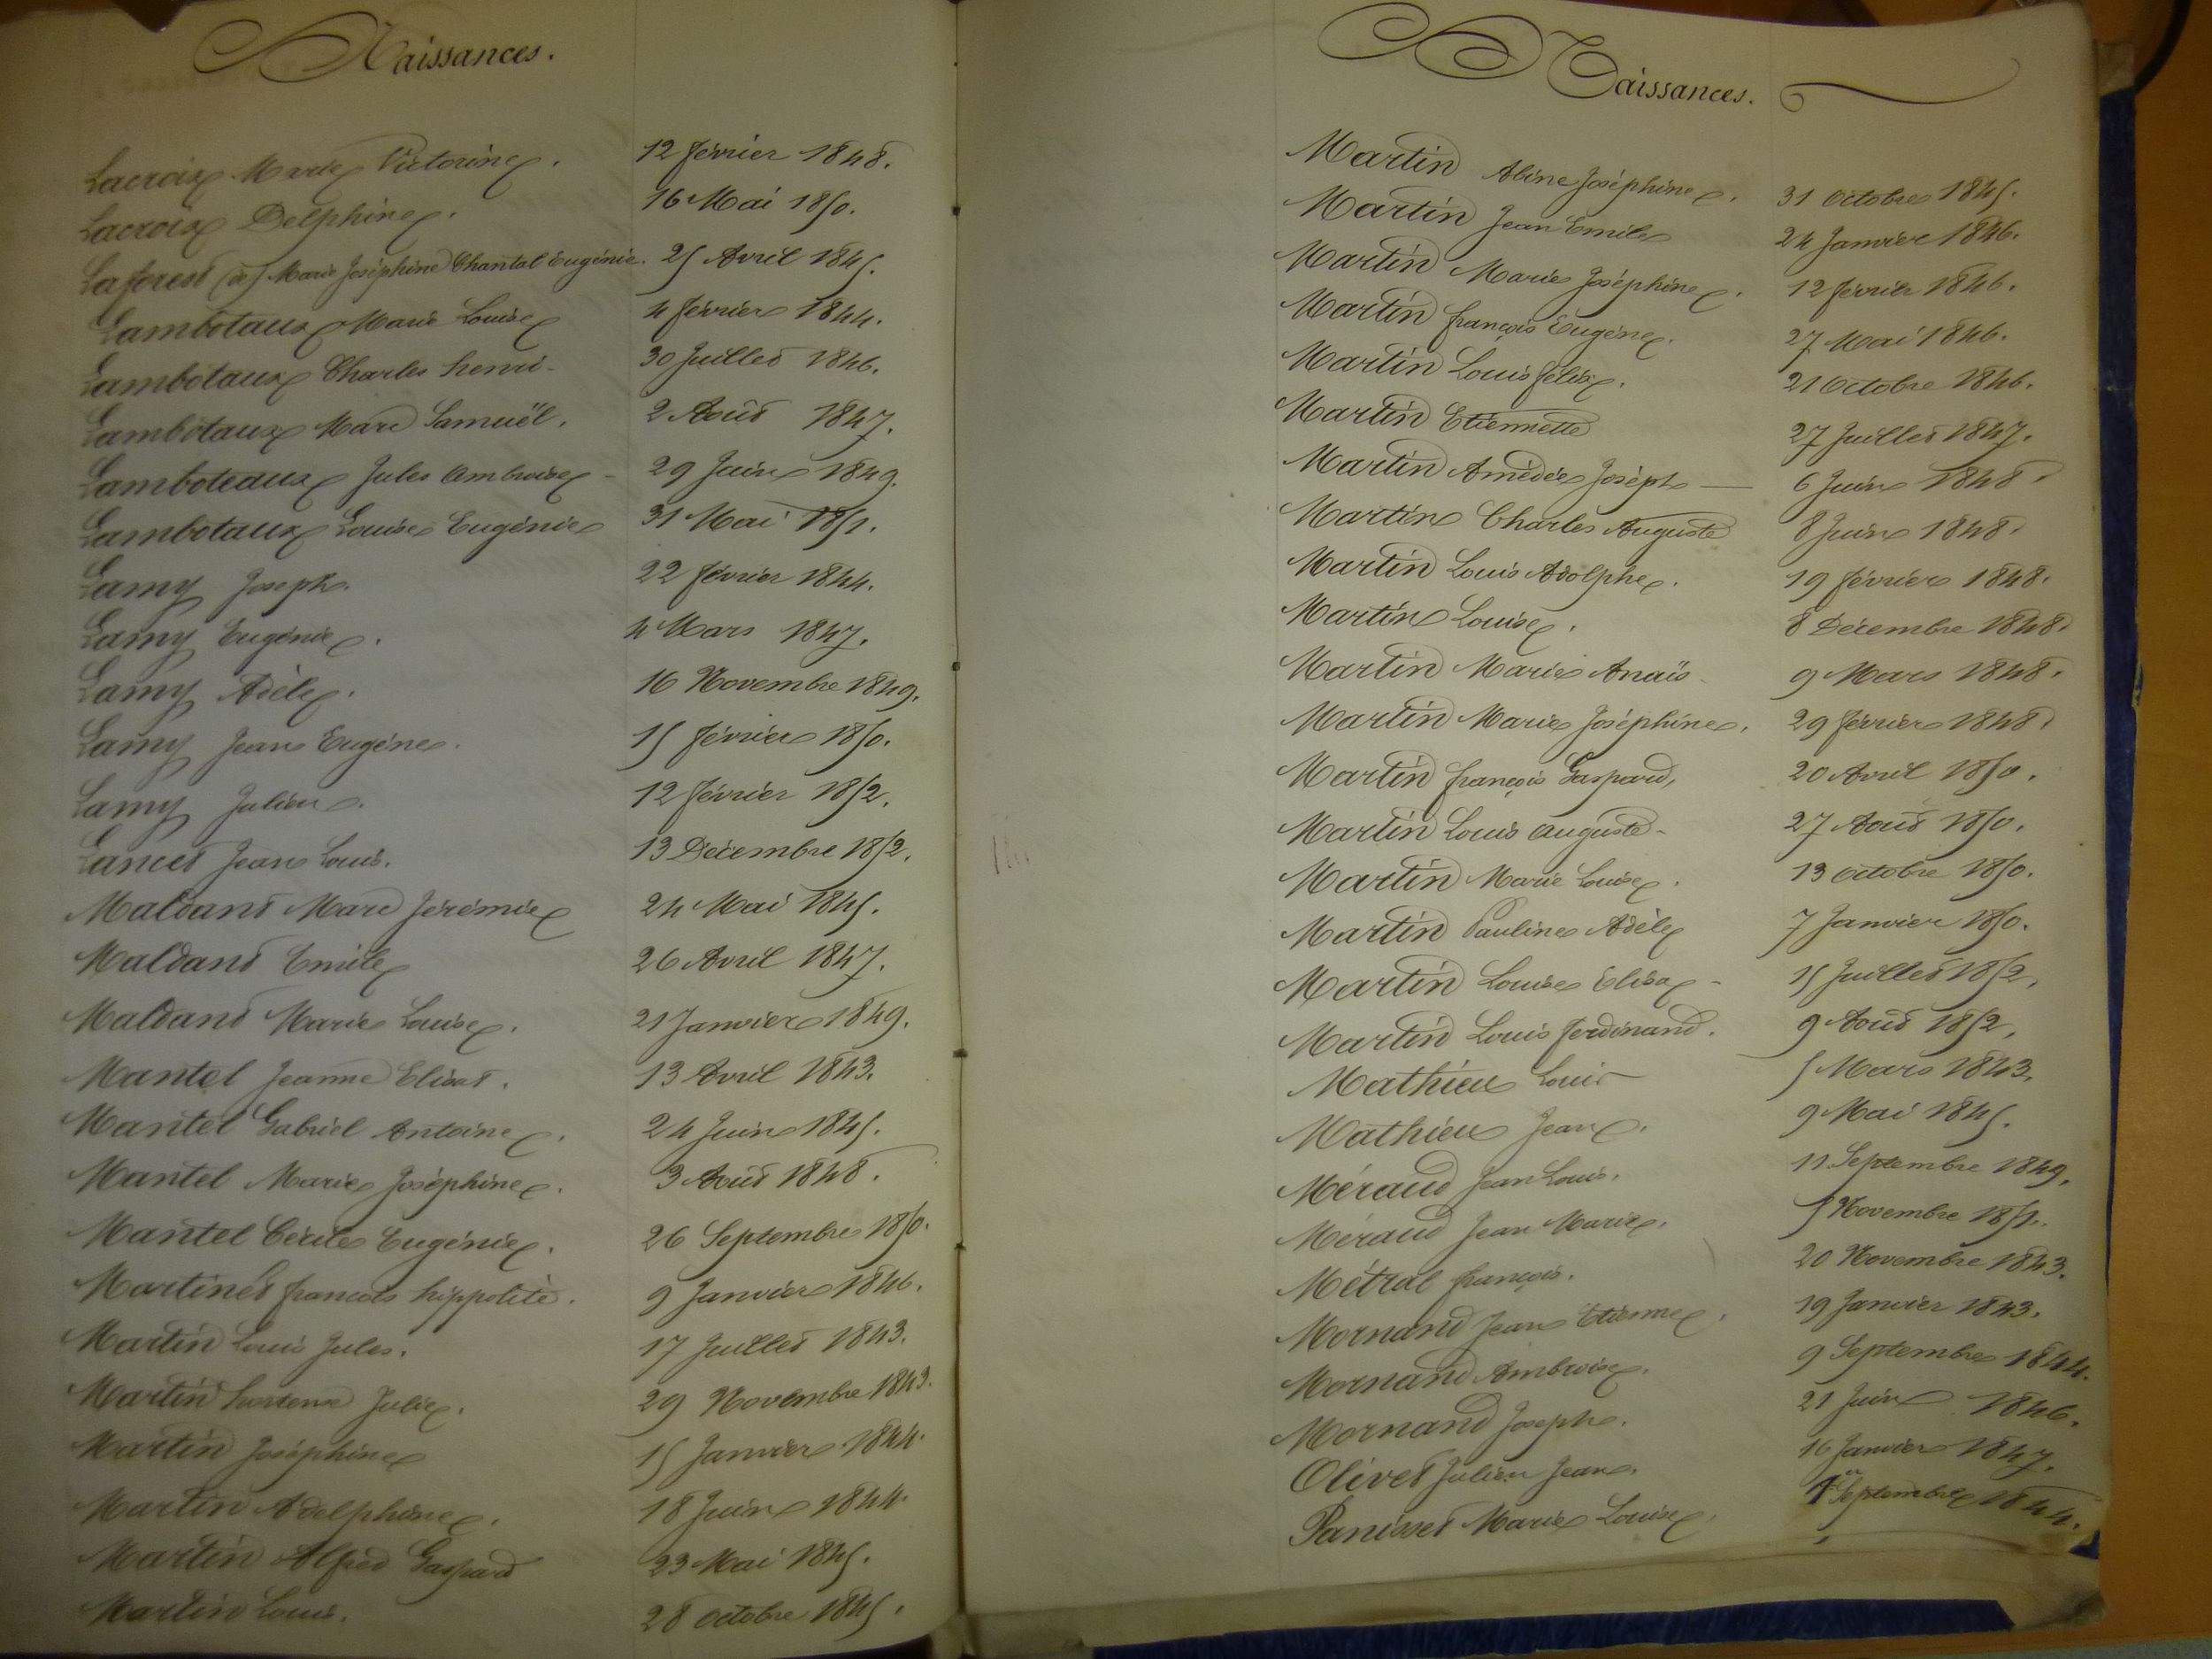 Naissances.
Lacroix Marie Victorine. 12 février 1848.
Lacroix Delphine. 16 Mai 1850.
Laforest (de) Marie Joséphine Chantal Eugénie. 25 Avril 1845.
Lambotaux Marie Louise 4 février 1844.
Lambotaux Charles henri 30 Juillet 1846.
Lambotaux Marc Samuël. 2 Août 1847.
Lamboteaux Jules Ambroise 29 Juin 1849.
Lambotaux Louise Eugénie 31 Mai 1851.
Lamy Joseph. 22 février 1844.
Lamy Eugénie. 4 Mars 1847.
Lamy Adèle. 16 Novembre 1849.
Lamy Jean Eugène. 15 février 1850.
Lamy Julien. 12 février 1852.
Lancet Jean Louis. 13 Décembre 1852.
Maldant Marc Jérémie 24 Mai 1845.
Maldant Emile 26 Avril 1847.
Maldant Marie Louise. 21 Janvier 1849.
Mantel Jeanne Elisat. 13 Avril 1843.
Mantel Gabriel Antoine. 24 Juin 1845.
Mantel Marie Joséphine. 3 Août 1848.
Mantel Cécile Eugénie. 26 Septembre 1850.
Martinet francois hippolite. 9 Janvier 1846.
Martin Louis Jules. 17 Juillet 1843.
Martin hortense Julie. 29 Novembre 1843.
Martin Joséphine 15 Janvier 1844.
Martin Adelphine. 18 Juin 1844.
Martin Alfred Gaspard 23 Mai 1845.
Martin Louis. 28 Octobre 1845.
Naissances.
Martin Abine Joséphine. 31 Octobre 1845.
Martin Jean Emile 24 Janvier 1846.
Martin Marie Joséphine. 12 février 1846.
Martin françois Eugène. 27 Mai 1846.
Martin Louis félix. 21 Octobre 1846.
Martin Etiennette 27 Juillet 1847.
Martin Amédée Joseph — 6 Juin 1848.
Martin Charles Auguste 8 Juin 1848.
Martin Louis Adolphe. 19 février 1848.
Martin Louise. 8 Décembre 1848.
Martin Marie Anaïs 9 Mars 1848.
Martin Marie Joséphine. 29 février 1848.
Martin françois Gaspard, 20 Avril 1850.
Martin Louis Auguste- 27 Août 1850.
Martin Marie Louise. 13 Octobre 1850.
Martin Pauline Adèle 7 Janvier 1850.
Martin Louise Elisa - 15 Juillet 1852.
Martin Louis ferdinand. 9 Août 1852.
Mathieu Louis 5 Mars 1843.
Mathieu Jean. 9 Mai 1845.
Méraud Jean Louis. 11 Septembre 1849.
Méraud Jean Marie. 5 Novembre 1851.
Métral françois. 20 Novembre 1843.
Mornand Jean Etienne. 19 Janvier 1843.
Mornand Ambroise. 9 Septembre 1844.
Mornand Joseph. 21 Juin 1846.
Olivet Julien Jean. 16 Janvier 1847.
Panisset Marie Louise. 1er Septembre 1844.